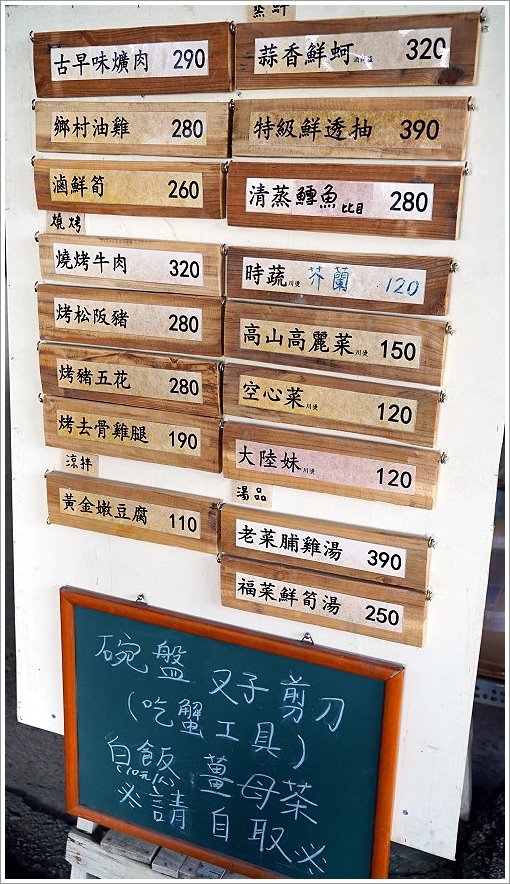 古早味爌肉 290
鄉村油雞 280
滷鮮筍 260
燒烤
燒烤牛肉 320
烤松阪豬 280
烤豬五花 280
烤去骨雞腿 190
涼拌
黃金嫩豆腐 110
蒜香鮮蚵 320
特級鮮透抽 390
清蒸鱈魚 比目 280
時蔬 川燙 芥蘭 120
高山高麗菜 川燙 150
空心菜 川燙 120
大陸妹 川燙 120
湯品
老菜脯雞湯 390
福菜鮮筍湯 250
碗盤 叉子 剪刀
(吃蟹工具)
白飯 薑母茶
※請自取※